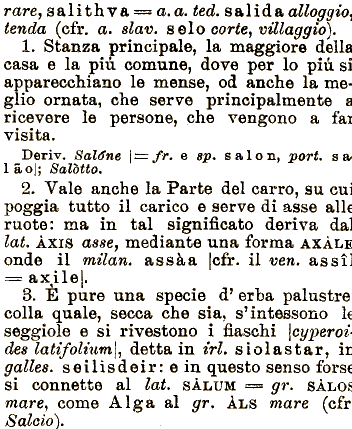 rare, salithva = a. a. ted. salida alloggio,
tenda (cfr. a. slav. selo corte, villaggio).
1. Stanza principale, la maggiore della
casa e la piú comune, dove per lo piú si
apparecchiano le mense, od anche la me-
glio ornata, che serve principalmente a
ricevere le persone, che vengono a far
visita.
Deriv. Salóne |= fr. e sp. salon, port. sa
lão|; Salòtto.
2. Vale anche la Parte del carro, su cui
poggia tutto il carico e serve di asse alle
ruote: ma in tal significato deriva dal
lat. ÀXIS asse, mediante una forma AXÀLE
onde il milan. assàa |cfr. il ven. assîl
= axile|.
3. È pure una specie d'erba palustre
colla quale, secca che sia, s'intessono le
seggiole e si rivestono i fiaschi |cyperoi-
des latifolium|, detta in irl. siolastar, in
galles. seilisdeir: e in questo senso forse
si connette al lat. SÀLUM = gr. SÀLOS
mare, come Alga al gr. ÀLS mare (cfr
Salcio).